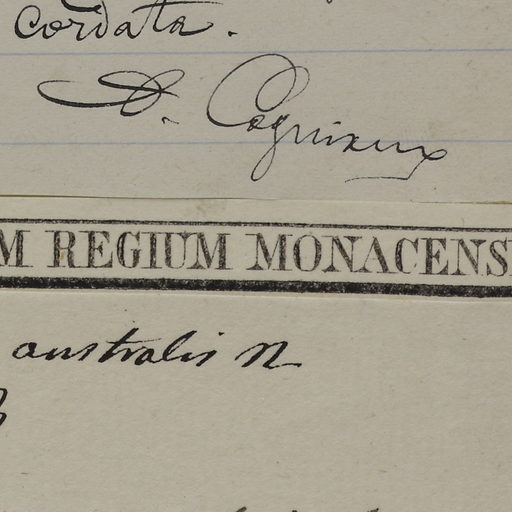 cordata.
A. Cogniaux
M REGIUM MONACENS
australis n